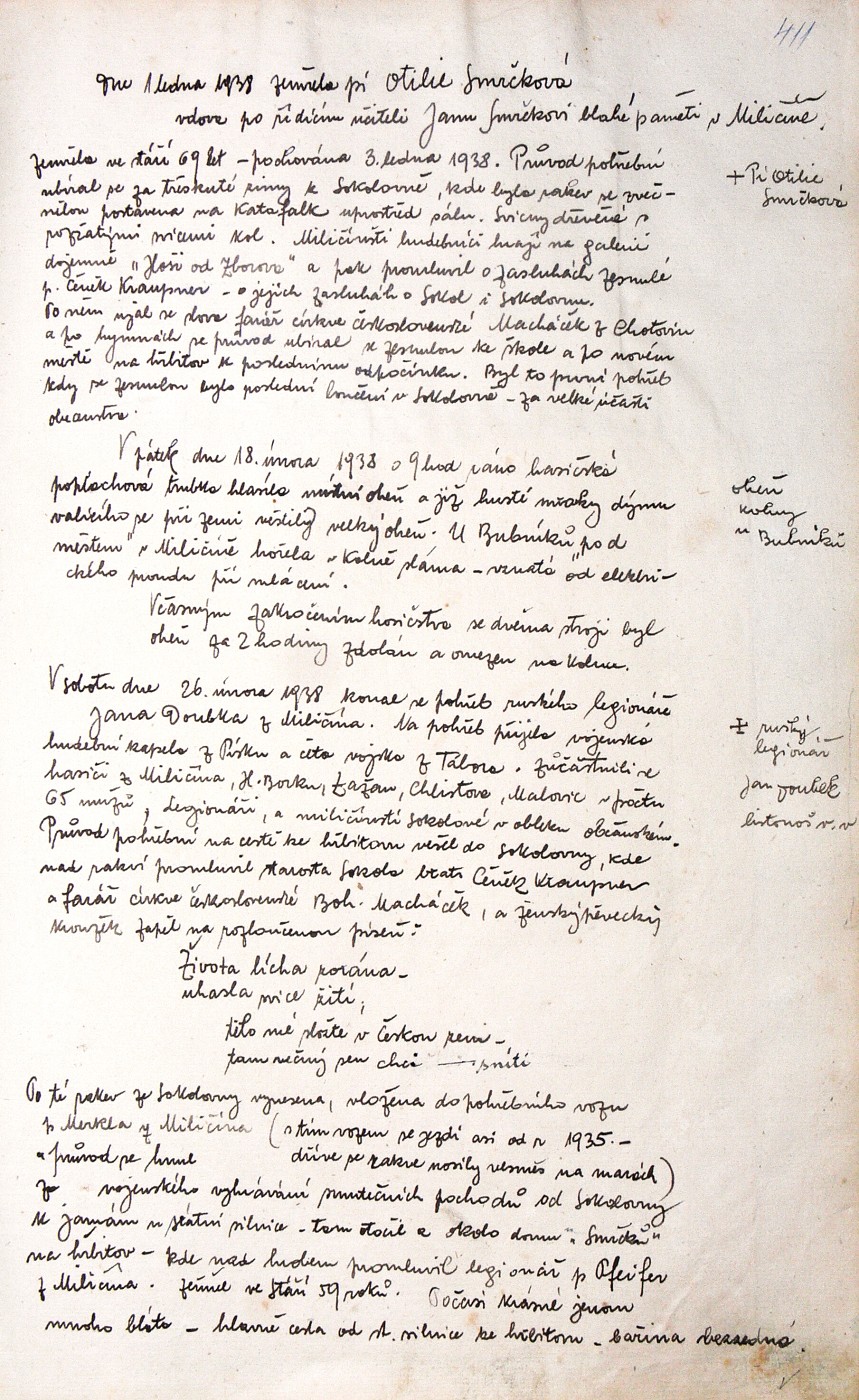 411
Dne 1 ledna 1938 zemřela pí Otilie Smrčková
vdova po řídícím učiteli Janu Smrčkovi blahé paměti v Miličíně,
zemřela ve stáří 69 let – pochována 3. ledna 1938. Průvod pohřební
+ Pí Otilie
Smrčková
ubíral se za třeskuté zimy k Sokolovně, kde byla rakev se zvěč-
nělou postavena na katafalk uprostřed sálu. Svícny dřevěné s
rozžatými svícemi kol. Miličínští hudebníci hrají na galerii
dojemně „Hoši od Zborova" a pak promluvil o zásluhách zesnulé
p. Čeněk Kraupner – o jejich zásluhách o Sokol i Sokolovnu.
Po něm ujal se slova farář církve československé Macháček z Chotovin
a po hymnách se průvod ubíral se zesnulou ke škole a po novém
městě na hřbitov k poslednímu odpočinku. Byl to první pohřeb
kdy se zesnulou bylo poslední loučení v Sokolovně – za velké účasti
obecenstva.
V pátek dne 18. února 1938 o 9 hod ráno hasičská
poplachová trubka hlásila místní oheň a již husté mraky dýmu
valícího se při zemi věštily velký oheň. U Bubníků „pod
městem" v Miličíně hořela v kolně sláma – vzňatá od elektri-
ckého proudu při mlácení.
oheň
kolny
u Bubníků
Včasným zakročením hasičstva se dvěma stroji byl
oheň za 2 hodiny zdolán a omezen na kolnu.
V sobotu dne 26. února 1938 konal se pohřeb ruského legionáře
Jana Doubka z Miličína. Na pohřeb přijela vojenská
hudební kapela z Písku a četa vojska z Tábora. Zúčastnili se
hasiči z Miličína, H. Borku, Zážan, Chlístova, Malovic v počtu
65 mužů, Legionáři, a miličínští sokolové v obleku občanském.
+ ruský
legionář
Jan Doubek
listonoš v. v
Průvod pohřební na cestě ke hřbitovu vešel do Sokolovny, kde
nad rakví promluvil starosta Sokola bratr Čeněk Kraupner
a farář církve československé Boh. Macháček, a ženský pěvecký
kroužek zapěl na rozloučenou píseň:
Života lícha zorána –
uhasla svíce žití;
tělo mé složte v českou zem –
tam věčný sen chci – sníti
Po té rakev ze Sokolovny vynesena, vložena do pohřebního vozu
p Merkla z Miličína (s tím vozem se jezdí asi od r 1935. –
dříve se rakve nosily vesměs na marách)
a průvod se hnul
za vojenského vyhrávání smutečních pochodů od Sokolovny
k jamám u státní silnice – tam otočil a okolo domu „u Smrčků"
na hřbitov – kde nad hrobem promluvil legionář p Pfeifer
z Miličína. Zemřel ve stáří 59 roků. Počasí krásné jenom
mnoho bláta – hlavně cesta od st. silnice ke hřbitovu – bařina bezedná.